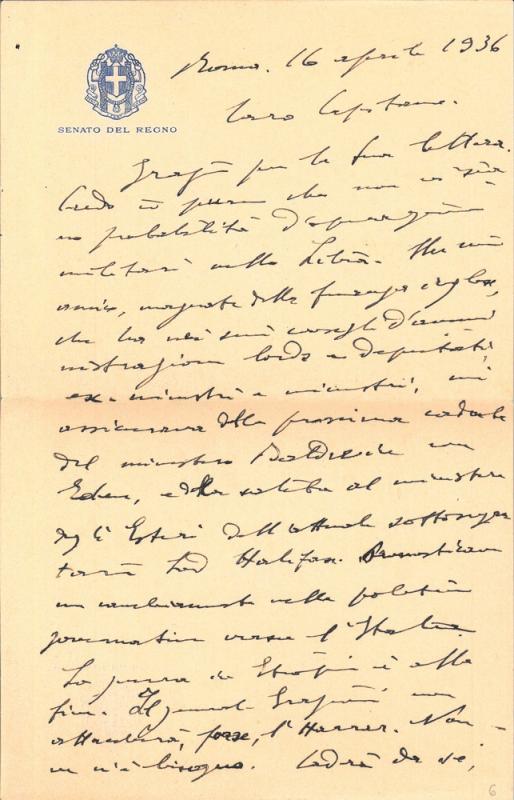 SENATO DEL REGNO
Roma. 16 aprile 1936
Caro Capitano.
Grazie per la sua lettera.
Credo io pure che non ci sia
no probabilità d'operazioni
militari nella Libia. Un mio
amico, magnate della finanza inglese,
che ha nei suoi consigli d'ammi
nistrazione lords e deputati,
ex-ministri e ministri, mi
assicurava della prossima caduta
del ministero Baldwin con
Eden, e della salita al ministero
degli Esteri dell'attuale sottosegre
tario Lord Halifax. Pronosticava
un cambiamento nella politica
governativa verso l'Italia.
La guerra in Etiopia è alla
fine. Il generale Graziani non
attaccherà, forse, l'Harrar. Non
ve n'è bisogno. Cadrà da sé,
6